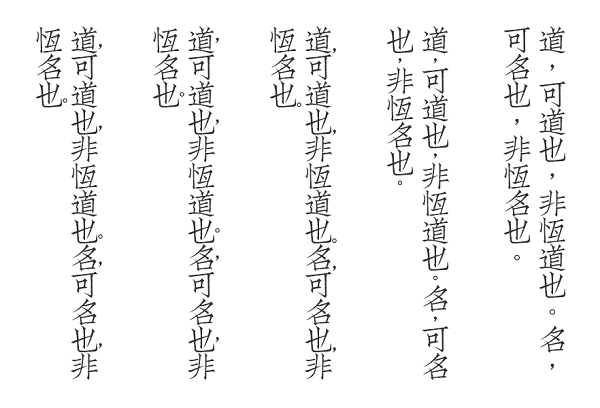 道，可道也，非恆道也。名，
可名也，非恆名也。
道，可道也，非恆道也。名，可名
也，非恆名也。
道，可道也，非恆道也。名，可名也，非
恆名也。
道，可道也，非恆道也。名，可名也，非
恆名也。
道，可道也，非恆道也。名，可名也，非
恆名也。